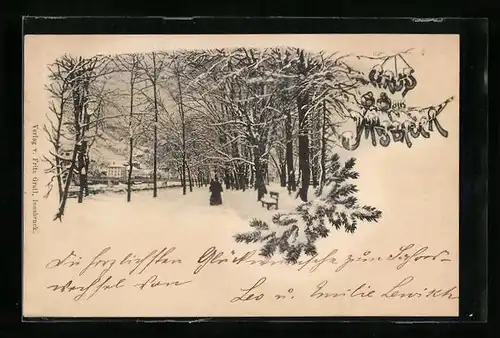 Gruss
aus
Innsbruck
Verlag v. Fritz Gratl, Innsbruck.
Die herzlichsten Glückwünsche zum Jahres-
wechsel von Leo u. Emilie